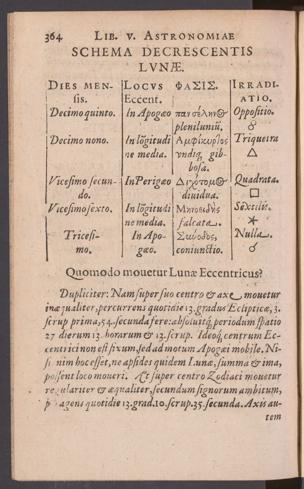 364 LIB. V. ASTRONOMIAE
SCHEMA DECRESCENTIS
LVNÆ.
DIES MEN- LOCVS ΦΑΣΙΣ. IRRADI-
sis. Eccent. ATIO.
Decimo quinto. In Apogæo πανσέληνΘ Oppositio.
pleniluniũ. ☍
Decimo nono. In lõgitudi Αμφίκυρτος Triquetra
ne media. undiq; gib- △
bosa.
Vicesimo secun- In Perigæo ΔιχότομΘ Quadrata.
do. dividua. □
Vicesimo sexto. In lõgitudi Μηνοειδὴς Sextilis.
ne media. falcata. ✶
Tricesi- In Apo- Σύνοδος, Nulla.
mo. gæo. coniunctio. ☌
Quomodo mouetur Lunæ Eccentricus?
Dupliciter: Nam super suo centro & axe mouetur
inæqualiter, percurrens quotidie 13. gradus Eclipticæ, 3.
scrup prima, 54. secunda fere: absoluitq́; periodum spatio
27 dierum 13. horarum & 13. scrup. Ideoq́; centrum Ec-
centrici non est fixum, sed ad motum Apogæi mobile. Ni-
si nim hoc esset, ne apsides quidem Lunæ, summa & ima,
possent loco moueri. At super centro Zodiaci mouetur
regulariter & æqualiter, secundum signorum ambitum,
p agens quotidie 13. grad. 10. scrup. 35. secunda. Axis au-
tem